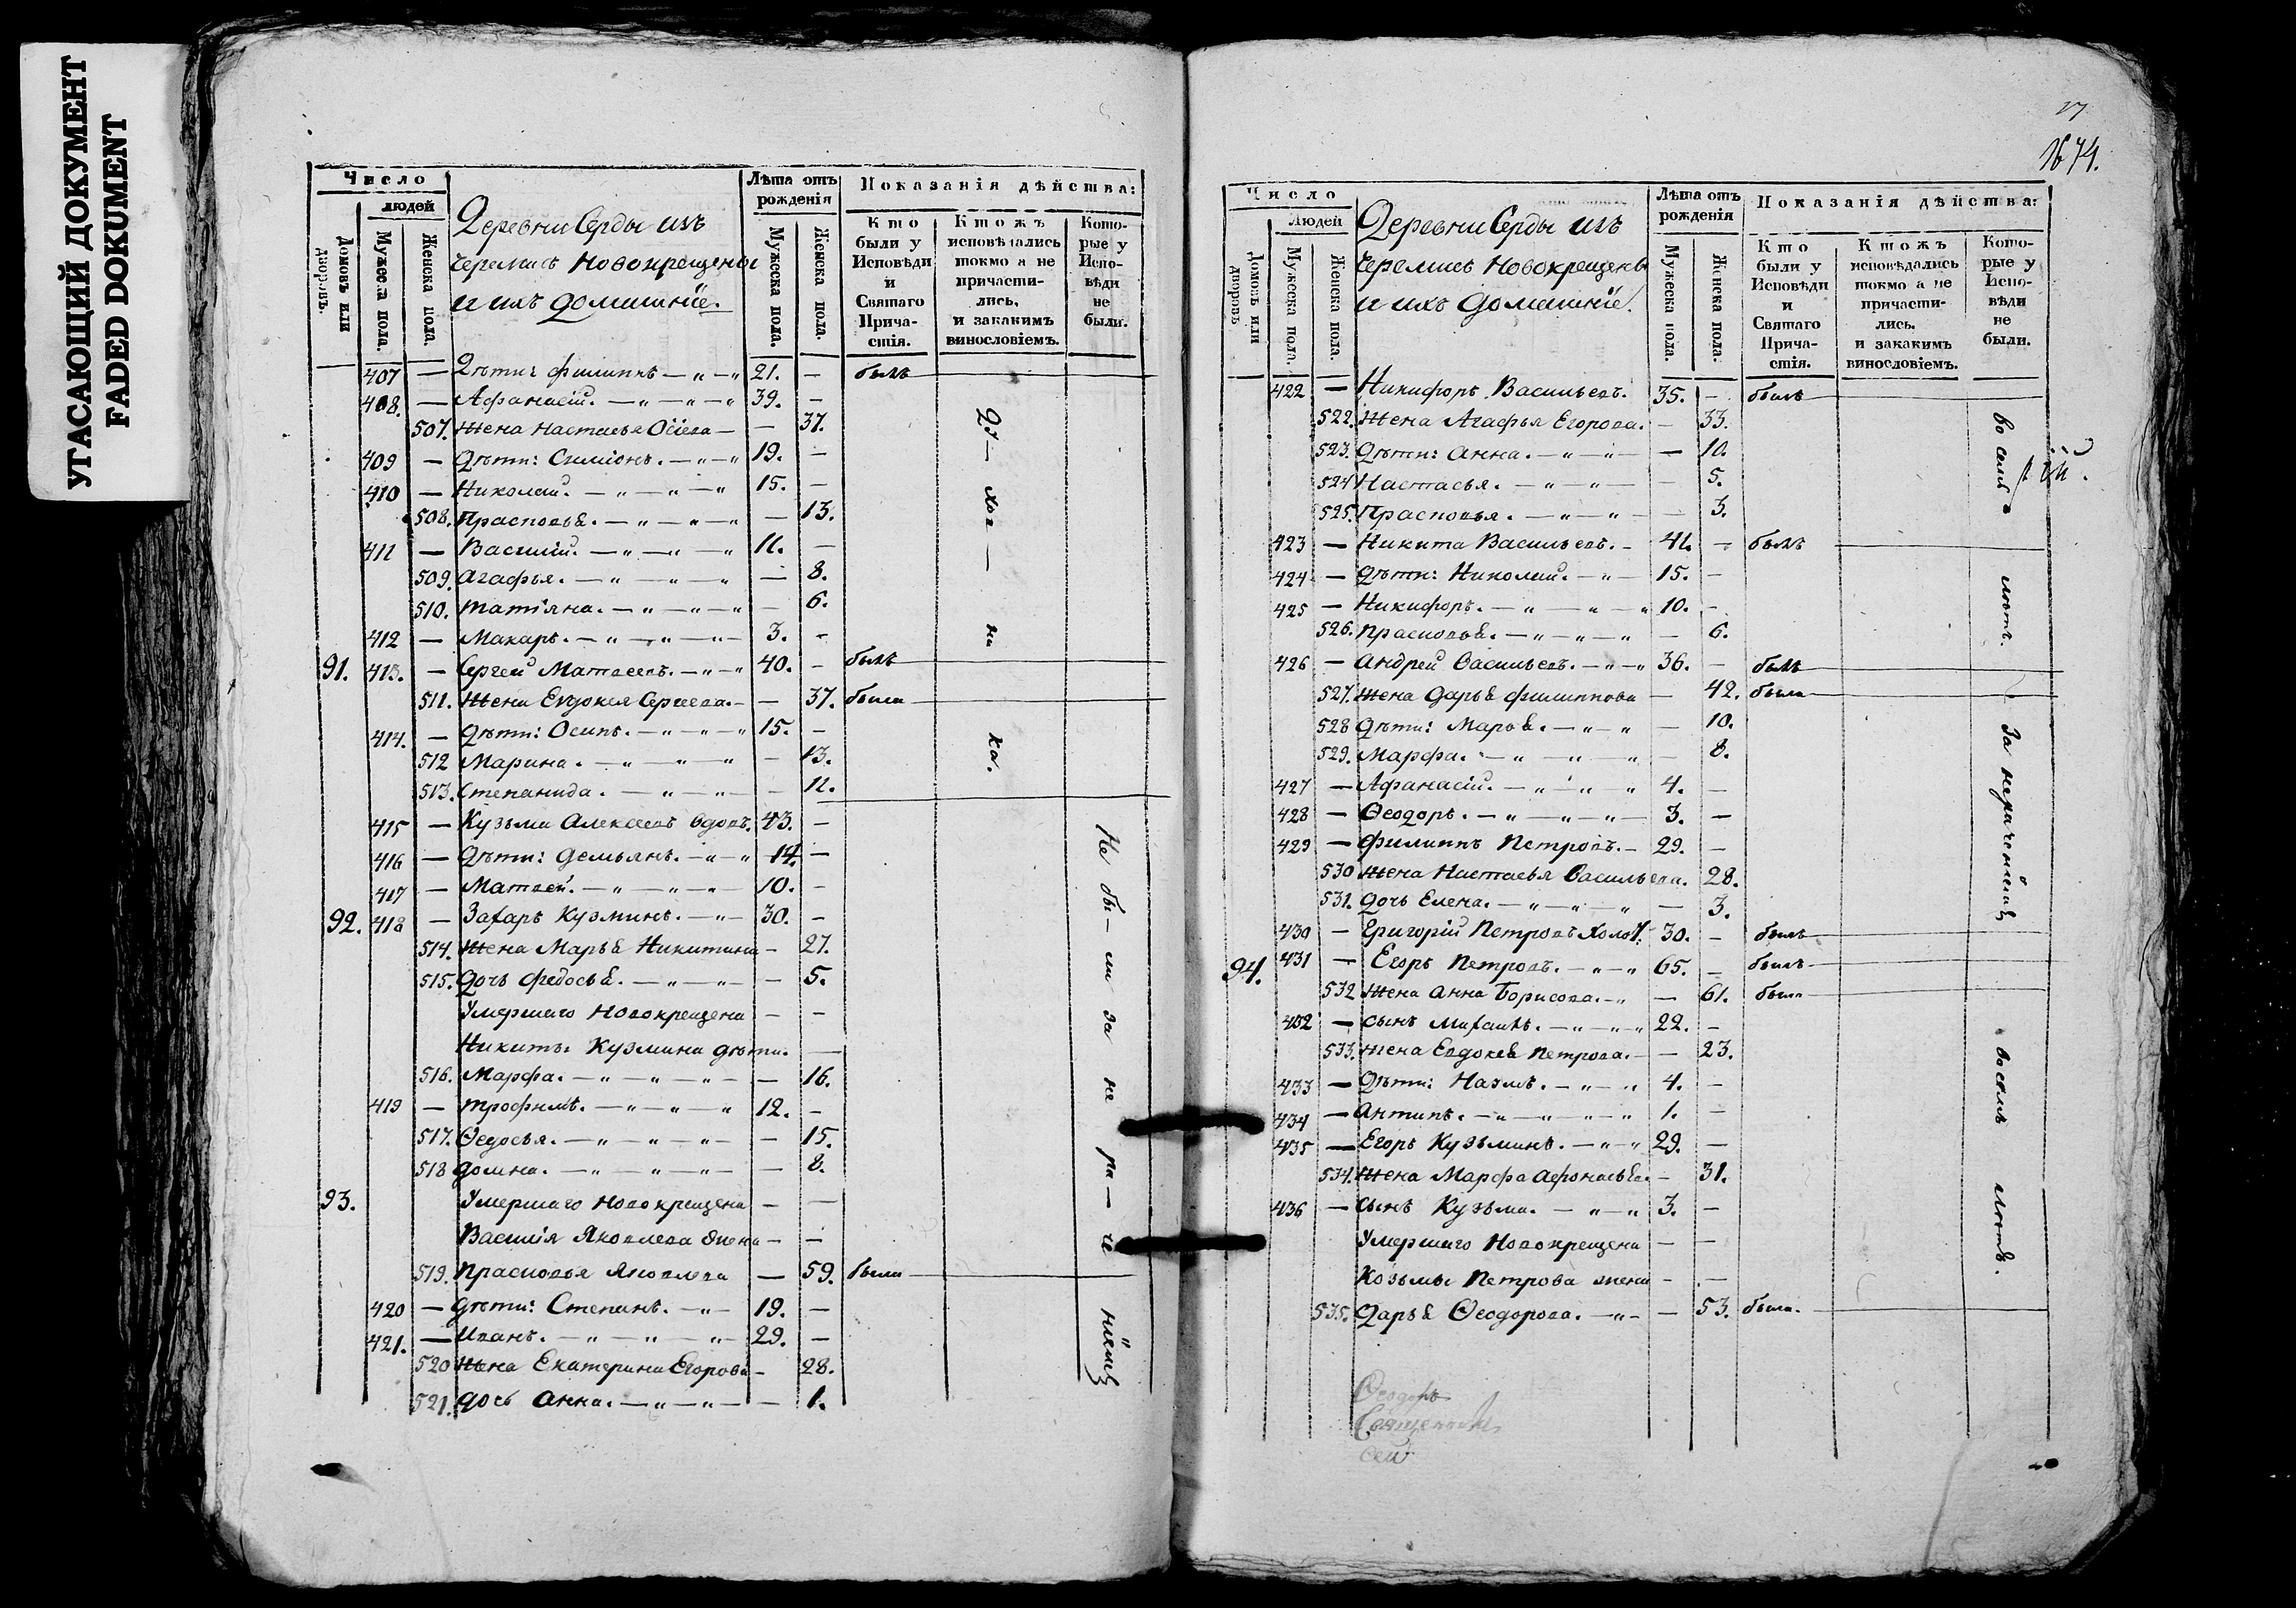 УТАСАЮЩИЙ ДОКУМЕНТ
FADED DOKUMENT
Число
людей
Домовъ или дворовъ.
Мужеска пола.
Женска пола.
Деревни Серды изъ
Черемисъ Новокрещены
и ихъ домашнїе.
Лѣта отъ рожденія
Мужеска пола.
Женска пола.
Показанія дѣйства:
Кто были у Исповѣди и Святаго Причастія.
Ктожъ исповѣдались токмо а не причастились, и закакимъ винословіемъ.
Которые у Исповѣди не были.
407 — Дѣти: Филиппъ — „ — „ 21. — былъ
408. — Афанасій. — „ — „ — „ 39. —
507. Жена Настасья Осїева — — 37.
409 — Дѣти: Симіонъ. — „ — „ 19. —
410 — Николай. — „ — „ — „ 15. —
508. Прасковья. — „ — „ — „ — 13.
411 — Василій. — „ — „ — „ 11. —
509. Агафья. — „ — „ — „ — 8.
510. Татіяна. — „ — „ — „ — 6.
412 — Макаръ. — „ — „ — „ — 3. —
91. 413. — Сергей Матвеевъ. — „ — „ 40. — былъ
511. Жена Евдокея Сергеева. — — 37. была
414. — Дѣти: Осипъ. — „ — „ — „ 15. —
512 Марина. — „ — „ — „ — 13.
513. Степанида. — „ — „ — — 12.
415 — Кузьма Алексеевъ вдовъ. 43. —
416 — Дѣти: Демьянъ. — „ — „ 14. —
417 — Матвей. — „ — „ — „ — 10. —
92. 418 — Захаръ Кузминъ. — „ — 30. —
514. Жена Марья Никитина — 27.
515. Дочь Федосья. — „ — „ — — 5.
Умершаго Новокрещена — —
Никиты Кузмина дѣти. —
516. Марфа. — „ — „ — „ — — 16.
419 — Трофимъ. — „ — „ — „ 12. —
517. Ѳедосья. — „ — „ — „ — — 15.
518 Домна. — „ — „ — „ — — 8.
93. Умершаго Новокрещена — —
Василія Яковлева жена — —
519. Прасковья Яковлева — 59. была
420 — Дѣти: Степанъ. — „ — 19. —
421. — Иванъ. — „ — „ — „ — 29. —
520 Жена Екатерина Егорова — 28.
521. Дочь Анна. — „ — „ — — 1.
Не бы — ли за не ра — че нїемъ
1674.
Число
Людей
Домовъ или дворовъ
Мужеска пола.
Женска пола.
Деревни Серды изъ
Черемисъ Новокрещены
и ихъ домашнїе.
Лѣта отъ рожденія
Мужеска пола.
Женска пола.
Показанія дѣйства:
Кто были у Исповѣди и Святаго Причастія.
Ктожъ исповѣдались токмо а не причастились. и закакимъ винословіемъ.
Которые у Исповѣди не были.
422 — Никифоръ Васильевъ. 35. — былъ
522. Жена Агафья Егорова. — 33.
523. Дѣти: Анна. — „ — „ — — 10.
524 Настасья. — „ — „ — — 5.
525. Прасковья. — „ — „ — — 3.
423 — Никита Васильевъ. — 41. — былъ
424 — Дѣти: Николай. — „ — 15. —
425 — Никифоръ. — „ — „ — „ 10. —
526. Прасковья. — „ — „ — „ — 6.
426 — Андрей Васильевъ. — „ — „ 36. — былъ
527. Жена Дарья Филиппова — 42. была
528 Дѣти: Марья. — „ — „ — 10.
529. Марфа. — „ — „ — „ — 8.
427 — Афанасій. — „ — „ — „ 4. —
428 — Ѳеодоръ. — „ — „ — „ — 3. —
429 — Филиппъ Петровъ. — 29. —
530 Жена Настасья Васильева. 28.
531. Дочь Елена. — „ — „ — „ — 3.
430 — Григорій Петровъ холос. 30. — былъ
94. 431 — Егоръ Петровъ. — „ — „ 65. — былъ
532 Жена Анна Борисова. — „ — 61. была
432 — Сынъ Михаилъ. — „ — „ — „ 22. —
533. Жена Евдокея Петрова. — — 23.
433 — Дѣти: Наумъ. — „ — „ 4. —
434 — Антипъ. — „ — „ — „ — „ 1. —
435 — Егоръ Кузьминъ. — „ — „ 29. —
534. Жена Марфа Афонасьева. — 31.
436 — Сынъ Кузьма. — „ — „ 3. —
Умершаго Новокрещена — —
Козьмы Петрова жена — —
535. Дарья Ѳеодорова. — „ — — 53. была.
За нераченїемъ
Ѳеодоръ
Священникъ